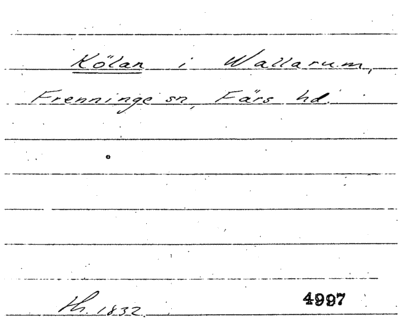 Kölan i Wallarum,
Frenninge sn, Färs hd.
Th. 1832
4997